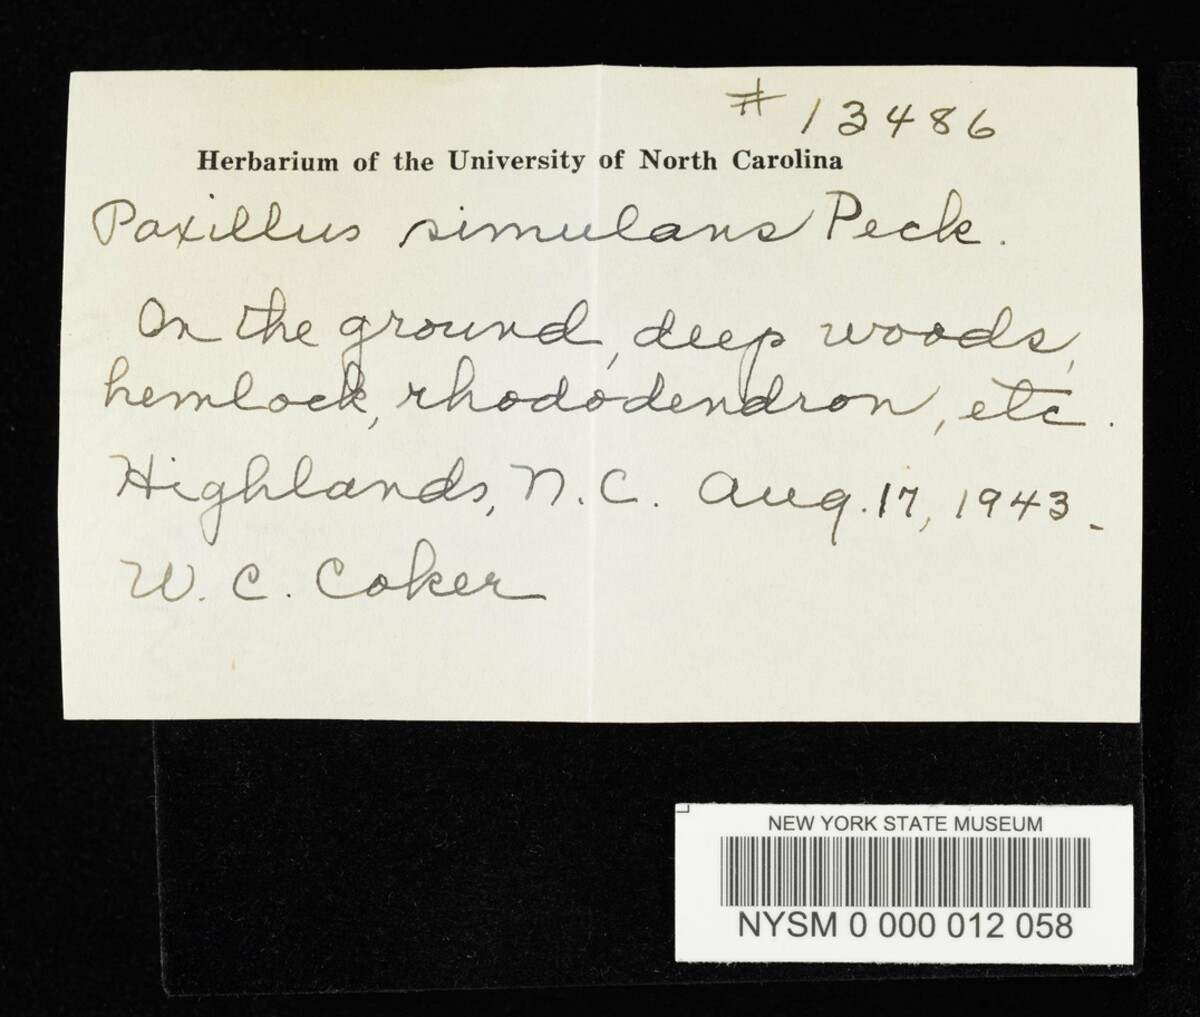 # 13486
Herbarium of the University of North Carolina
Paxillus simulans Peck.
On the ground, deep woods,
hemlock, rhododendron, etc.
Highlands, N. C. Aug. 17, 1943.
W. C. Coker
NEW YORK STATE MUSEUM
NYSM 0 000 012 058